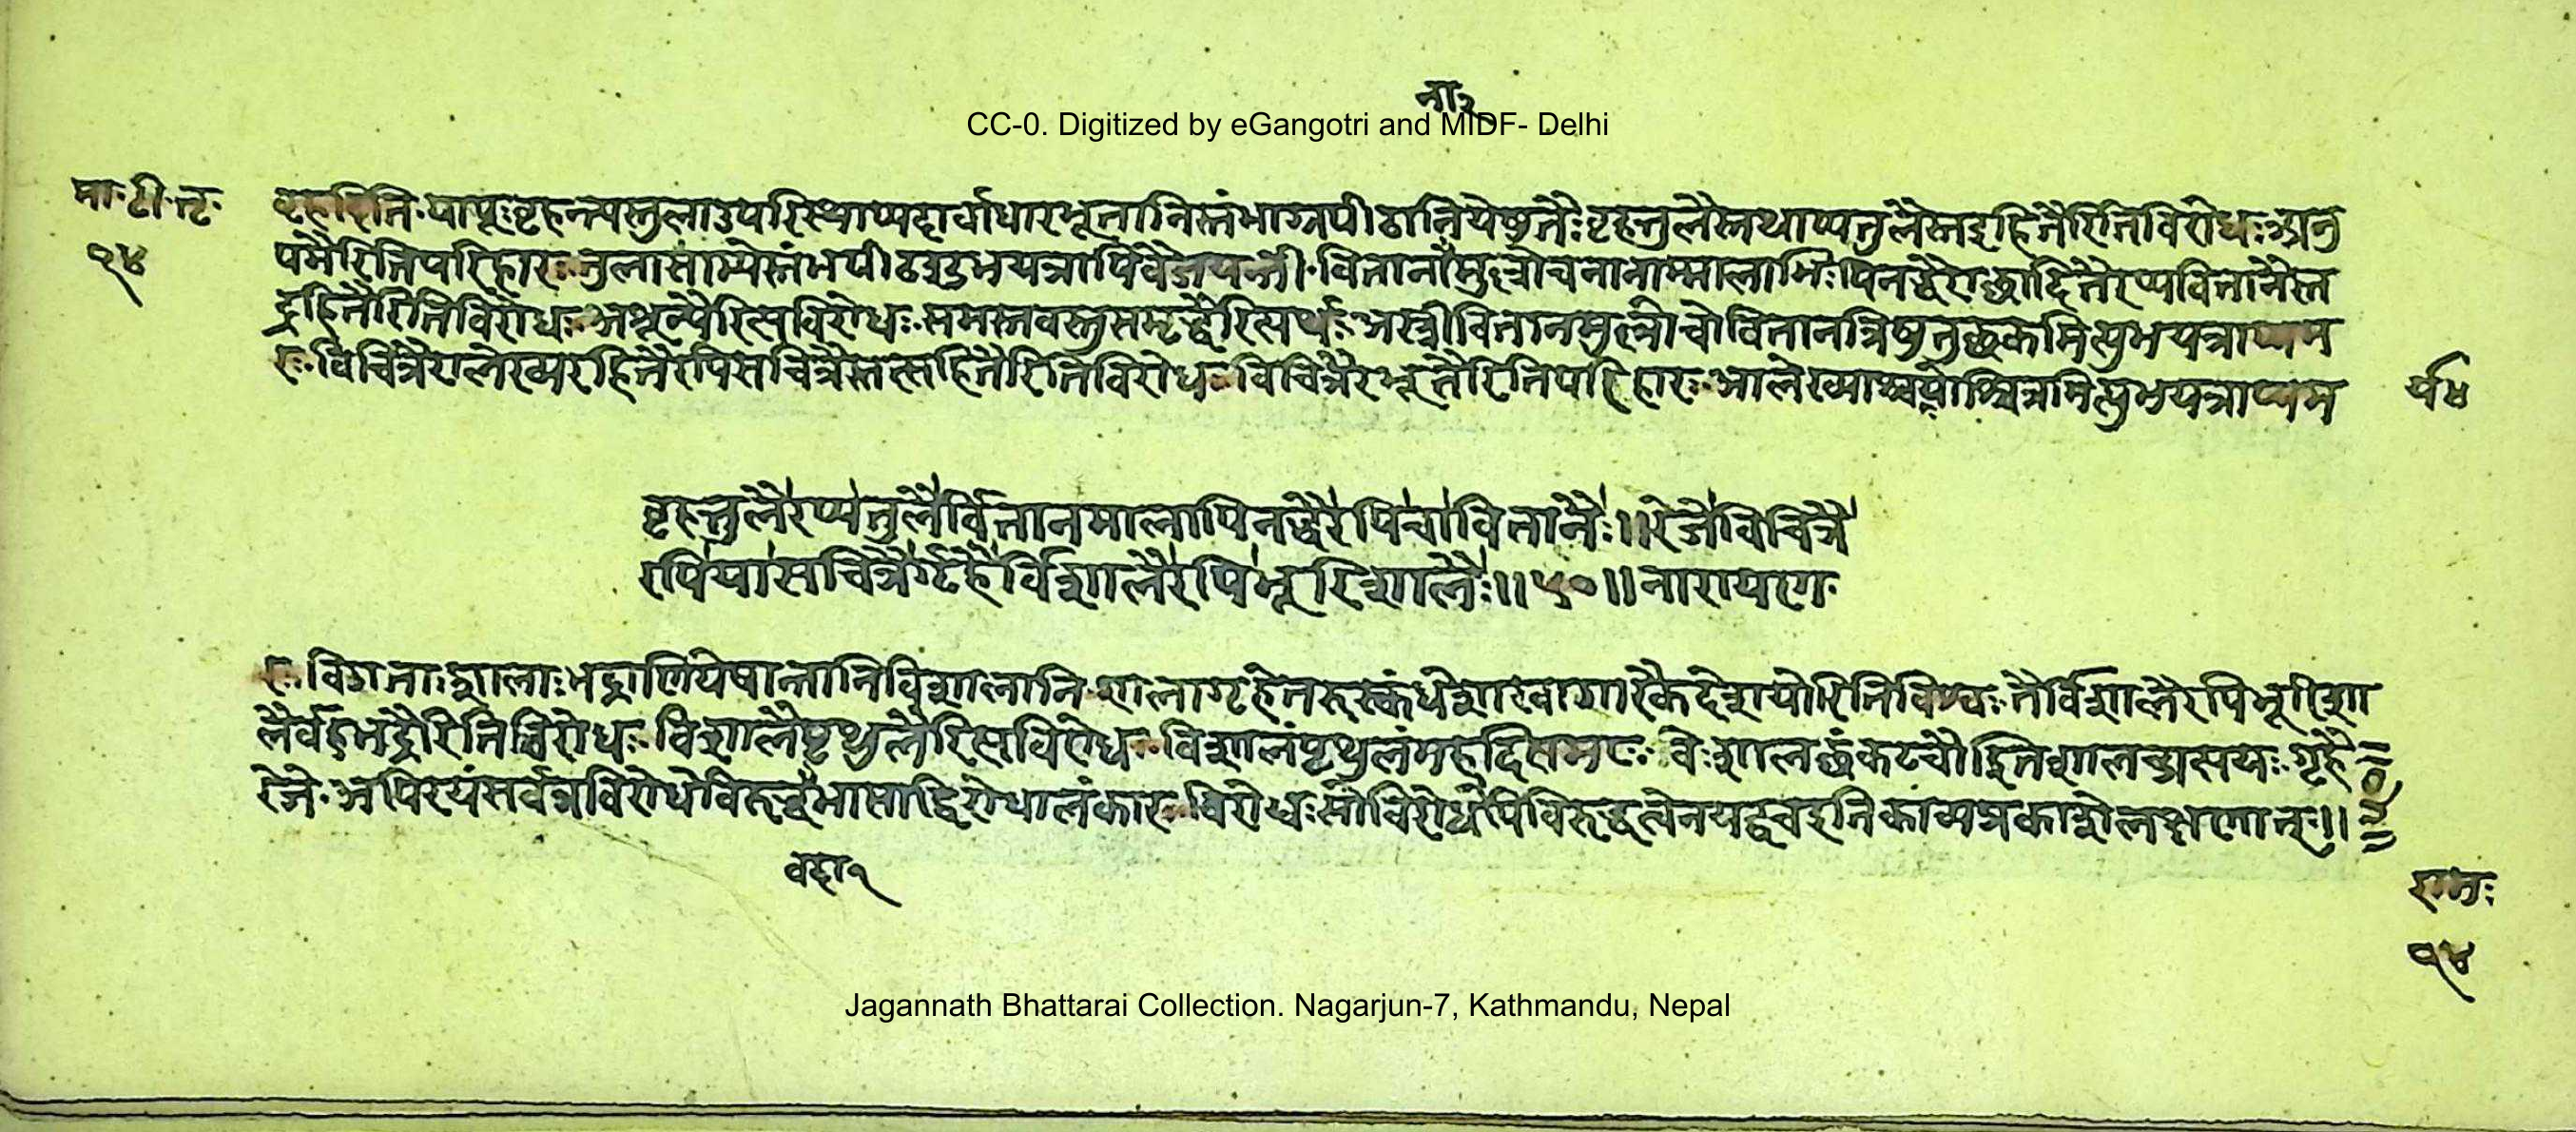 ना२
CC-0. Digitized by eGangotri and MIDF- Delhi
मा·टी·तृ·
२४
बृहदिति·यापूःबृहन्त्यस्तुलाउपरिस्थाप्यदार्वाधारभूतानिस्तंभाग्रपीठानियेषुतैःबृहत्तुलैस्तथाप्यतुलैस्तद्रहितैरितिविरोधःअतु
पमैरितिपरिहारःतुलासाम्येस्तंभपीठइत्युभयत्रापिवैजयन्ती·वितानानामुल्लोचनानाम्मालाभिःपिनद्धैराच्छादितैरप्यवितानैस्त
द्रहितैरितिविरोधःअशून्यैरित्यविरोधः·समस्तवस्तुसमृद्धैरित्यर्थःअस्त्रीवितानमुल्लोचोवितानन्त्रिषुतुच्छकमित्युभयत्राप्यम
रःविचित्रैरालेख्यरहितैरपिसचित्रैस्तत्सहितैरितिविरोधःविचित्रैरद्भूतैरितिपरिहारःआलेख्याश्चर्ययोश्चित्रमित्युभयत्राप्यम
र्यध
बृहत्तुलैरप्यतुलैर्वितानमालापिनद्धैरपिचावितानैः॥रेजेविचित्रै
रपियासचित्रैर्गृहैर्विशालैरपिभूरिशालैः॥५०॥नारायणे·
रःविगताःशालाःभद्राणियेषान्तानिविशालानि·शालागृहेतरुस्कंधेशाखागारैकदेशयोरितिविश्वःतैर्विशालैरपिभूरिशा
लैर्बहुभद्रैरितिविरोधःविशालैपृथुलैरित्यविरोधःविशालंपृथुलंमहदित्यमरः·वेःशालच्छंकटचौइतिशालच्प्रत्ययः·गृहैः
रेजे·अपिरयंसर्वत्रविरोधेविरुद्धाभासाद्विरोधालंकारःविरोधःसोविरोधेपिविरुद्धत्वेनयद्वचइतिकाव्यप्रकाशेलक्षणात्॥
५०
वहा१
रामः
२४
Jagannath Bhattarai Collection. Nagarjun-7, Kathmandu, Nepal